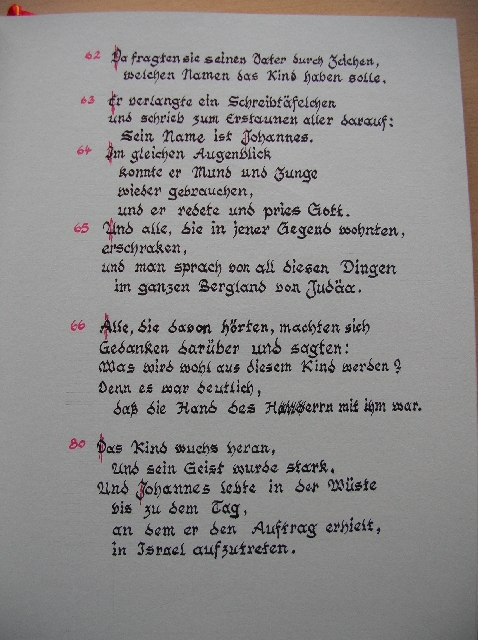 62 Da fragten sie seinen Vater durch Zeichen,
welchen Namen das Kind haben solle.
63 Er verlangte ein Schreibtäfelchen
und schrieb zum Erstaunen aller darauf:
Sein Name ist Johannes.
64 Im gleichen Augenblick
konnte er Mund und Zunge
wieder gebrauchen,
und er redete und pries Gott.
65 Und alle, die in jener Gegend wohnten,
erschraken,
und man sprach von all diesen Dingen
im ganzen Bergland von Judäa.
66 Alle, die davon hörten, machten sich
Gedanken darüber und sagten:
Was wird wohl aus diesem Kind werden?
Denn es war deutlich,
daß die Hand des Herrn mit ihm war.
80 Das Kind wuchs heran,
Und sein Geist wurde stark.
Und Johannes lebte in der Wüste
bis zu dem Tag,
an dem er den Auftrag erhielt,
in Israel aufzutreten.